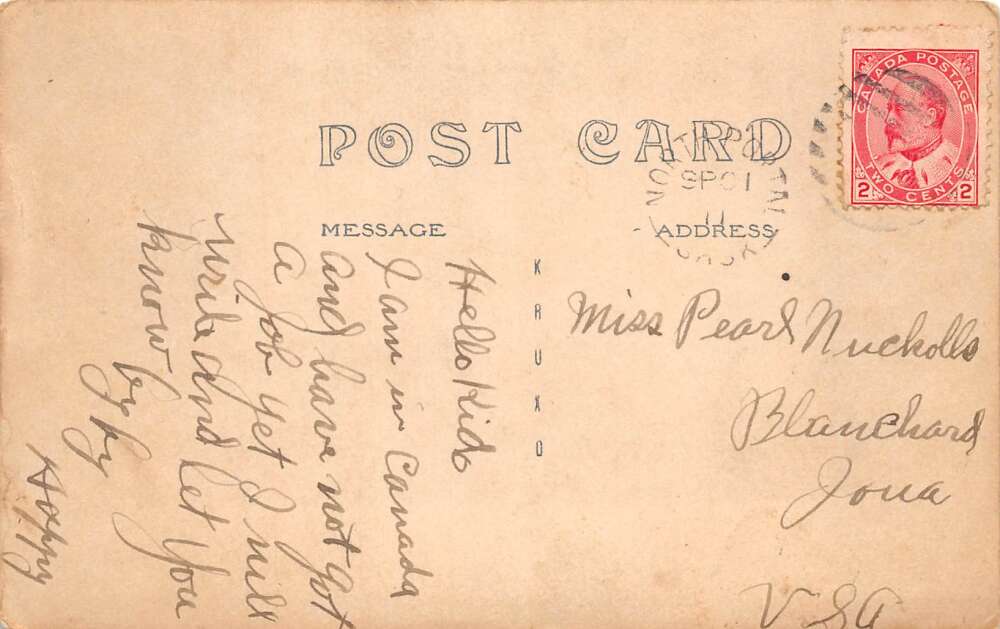 POST CARD
MESSAGE
ADDRESS
KRUXO
CANADA POSTAGE
TWO CENTS
2 2
SP 01
11
Hello Kid
I am in Canada
and have not got
a job yet I will
write and let you
know by by
Hoppy
Miss Pearl Nuckolls
Blanchard
Iowa
USA